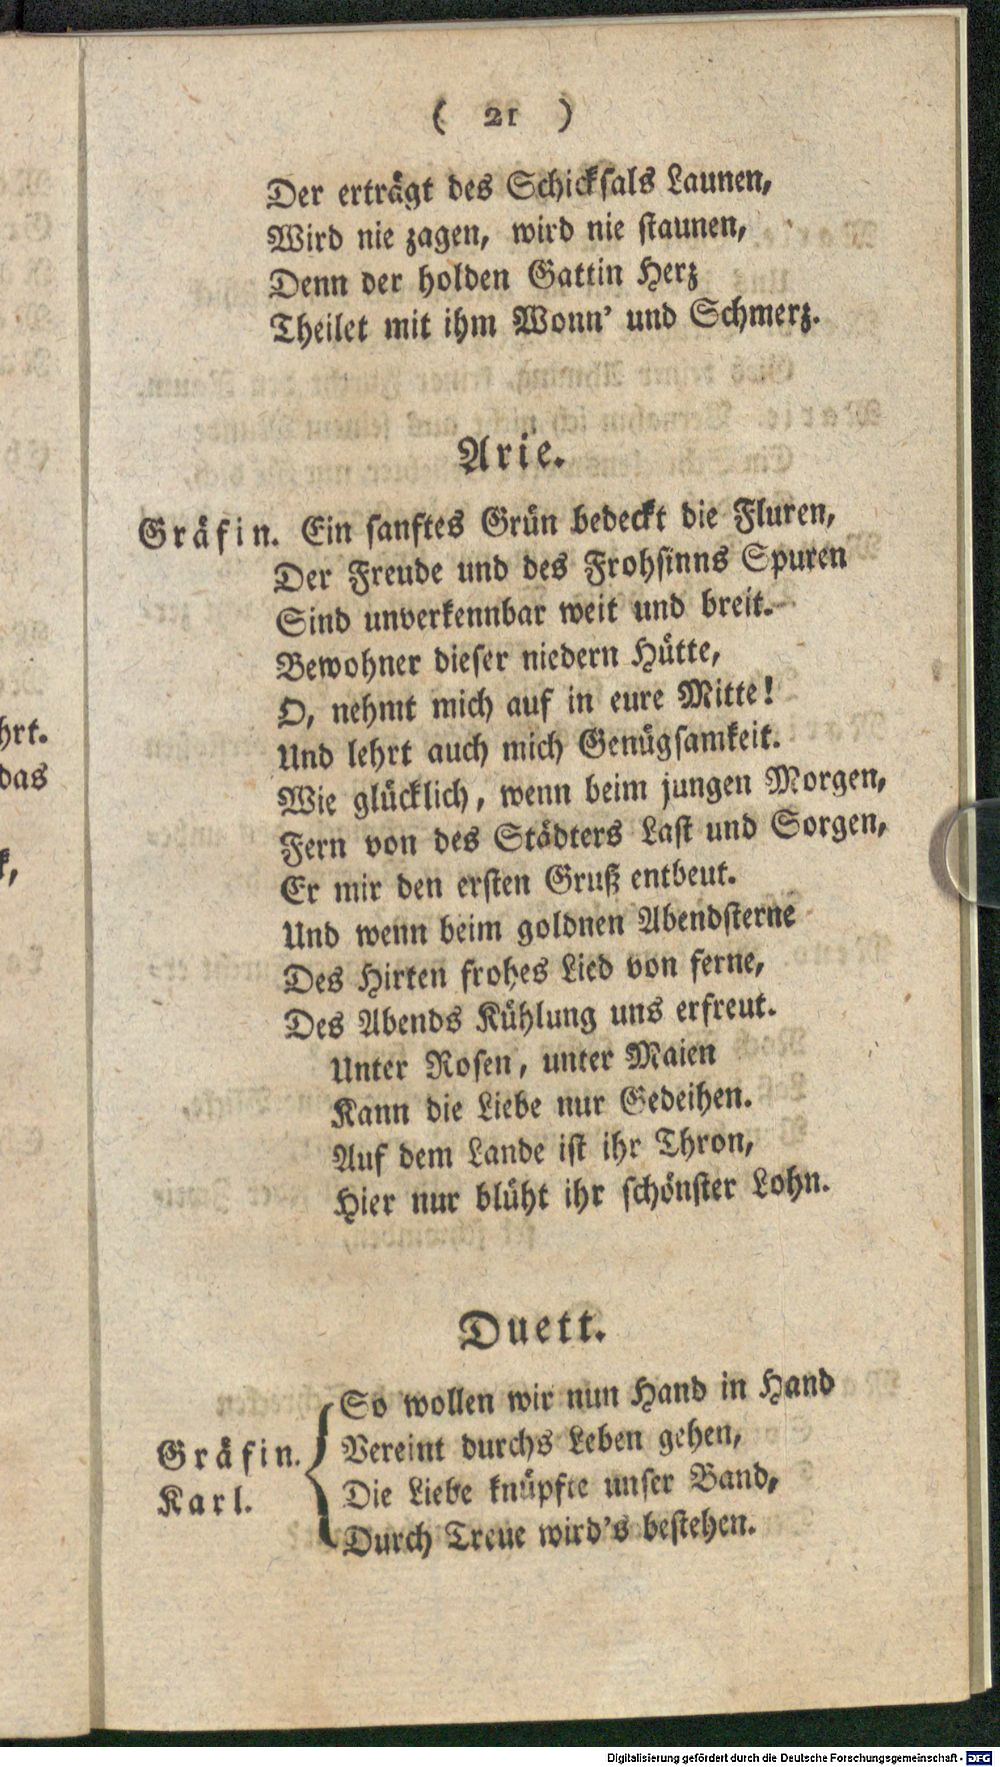 ( 21 )
Der erträgt des Schicksals Launen,
Wird nie zagen, wird nie staunen,
Denn der holden Gattin Herz
Theilet mit ihm Wonn' und Schmerz.
Arie.
Gräfin. Ein sanftes Grün bedeckt die Fluren,
Der Freude und des Frohsinns Spuren
Sind unverkennbar weit und breit.
Bewohner dieser niedern Hütte,
O, nehmt mich auf in eure Mitte!
Und lehrt auch mich Genügsamkeit.
Wie glücklich, wenn beim jungen Morgen,
Fern von des Städters Last und Sorgen,
Er mir den ersten Gruß entbeut.
Und wenn beim goldnen Abendsterne
Des Hirten frohes Lied von ferne,
Des Abends Kühlung uns erfreut.
Unter Rosen, unter Maien
Kann die Liebe nur Gedeihen.
Auf dem Lande ist ihr Thron,
Hier nur blüht ihr schönster Lohn.
Duett.
So wollen wir nun Hand in Hand
Gräfin. Vereint durchs Leben gehen,
Karl. Die Liebe knüpfte unser Band,
Durch Treue wird's bestehen.
hrt.
das
k,
Digitalisierung gefördert durch die Deutsche Forschungsgemeinschaft - DFG